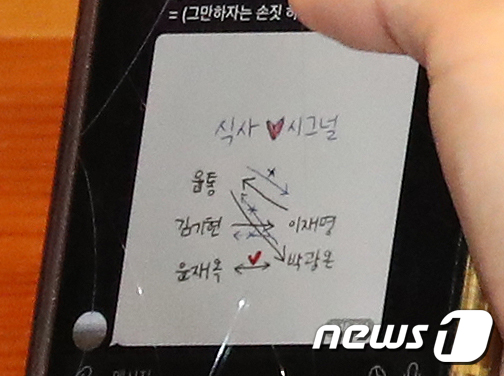 = (그만하자는 손짓 하
식사 ♥ 시그널
윤통
김기현 이재명
윤재옥 ♥ 박광온
메시지
news1